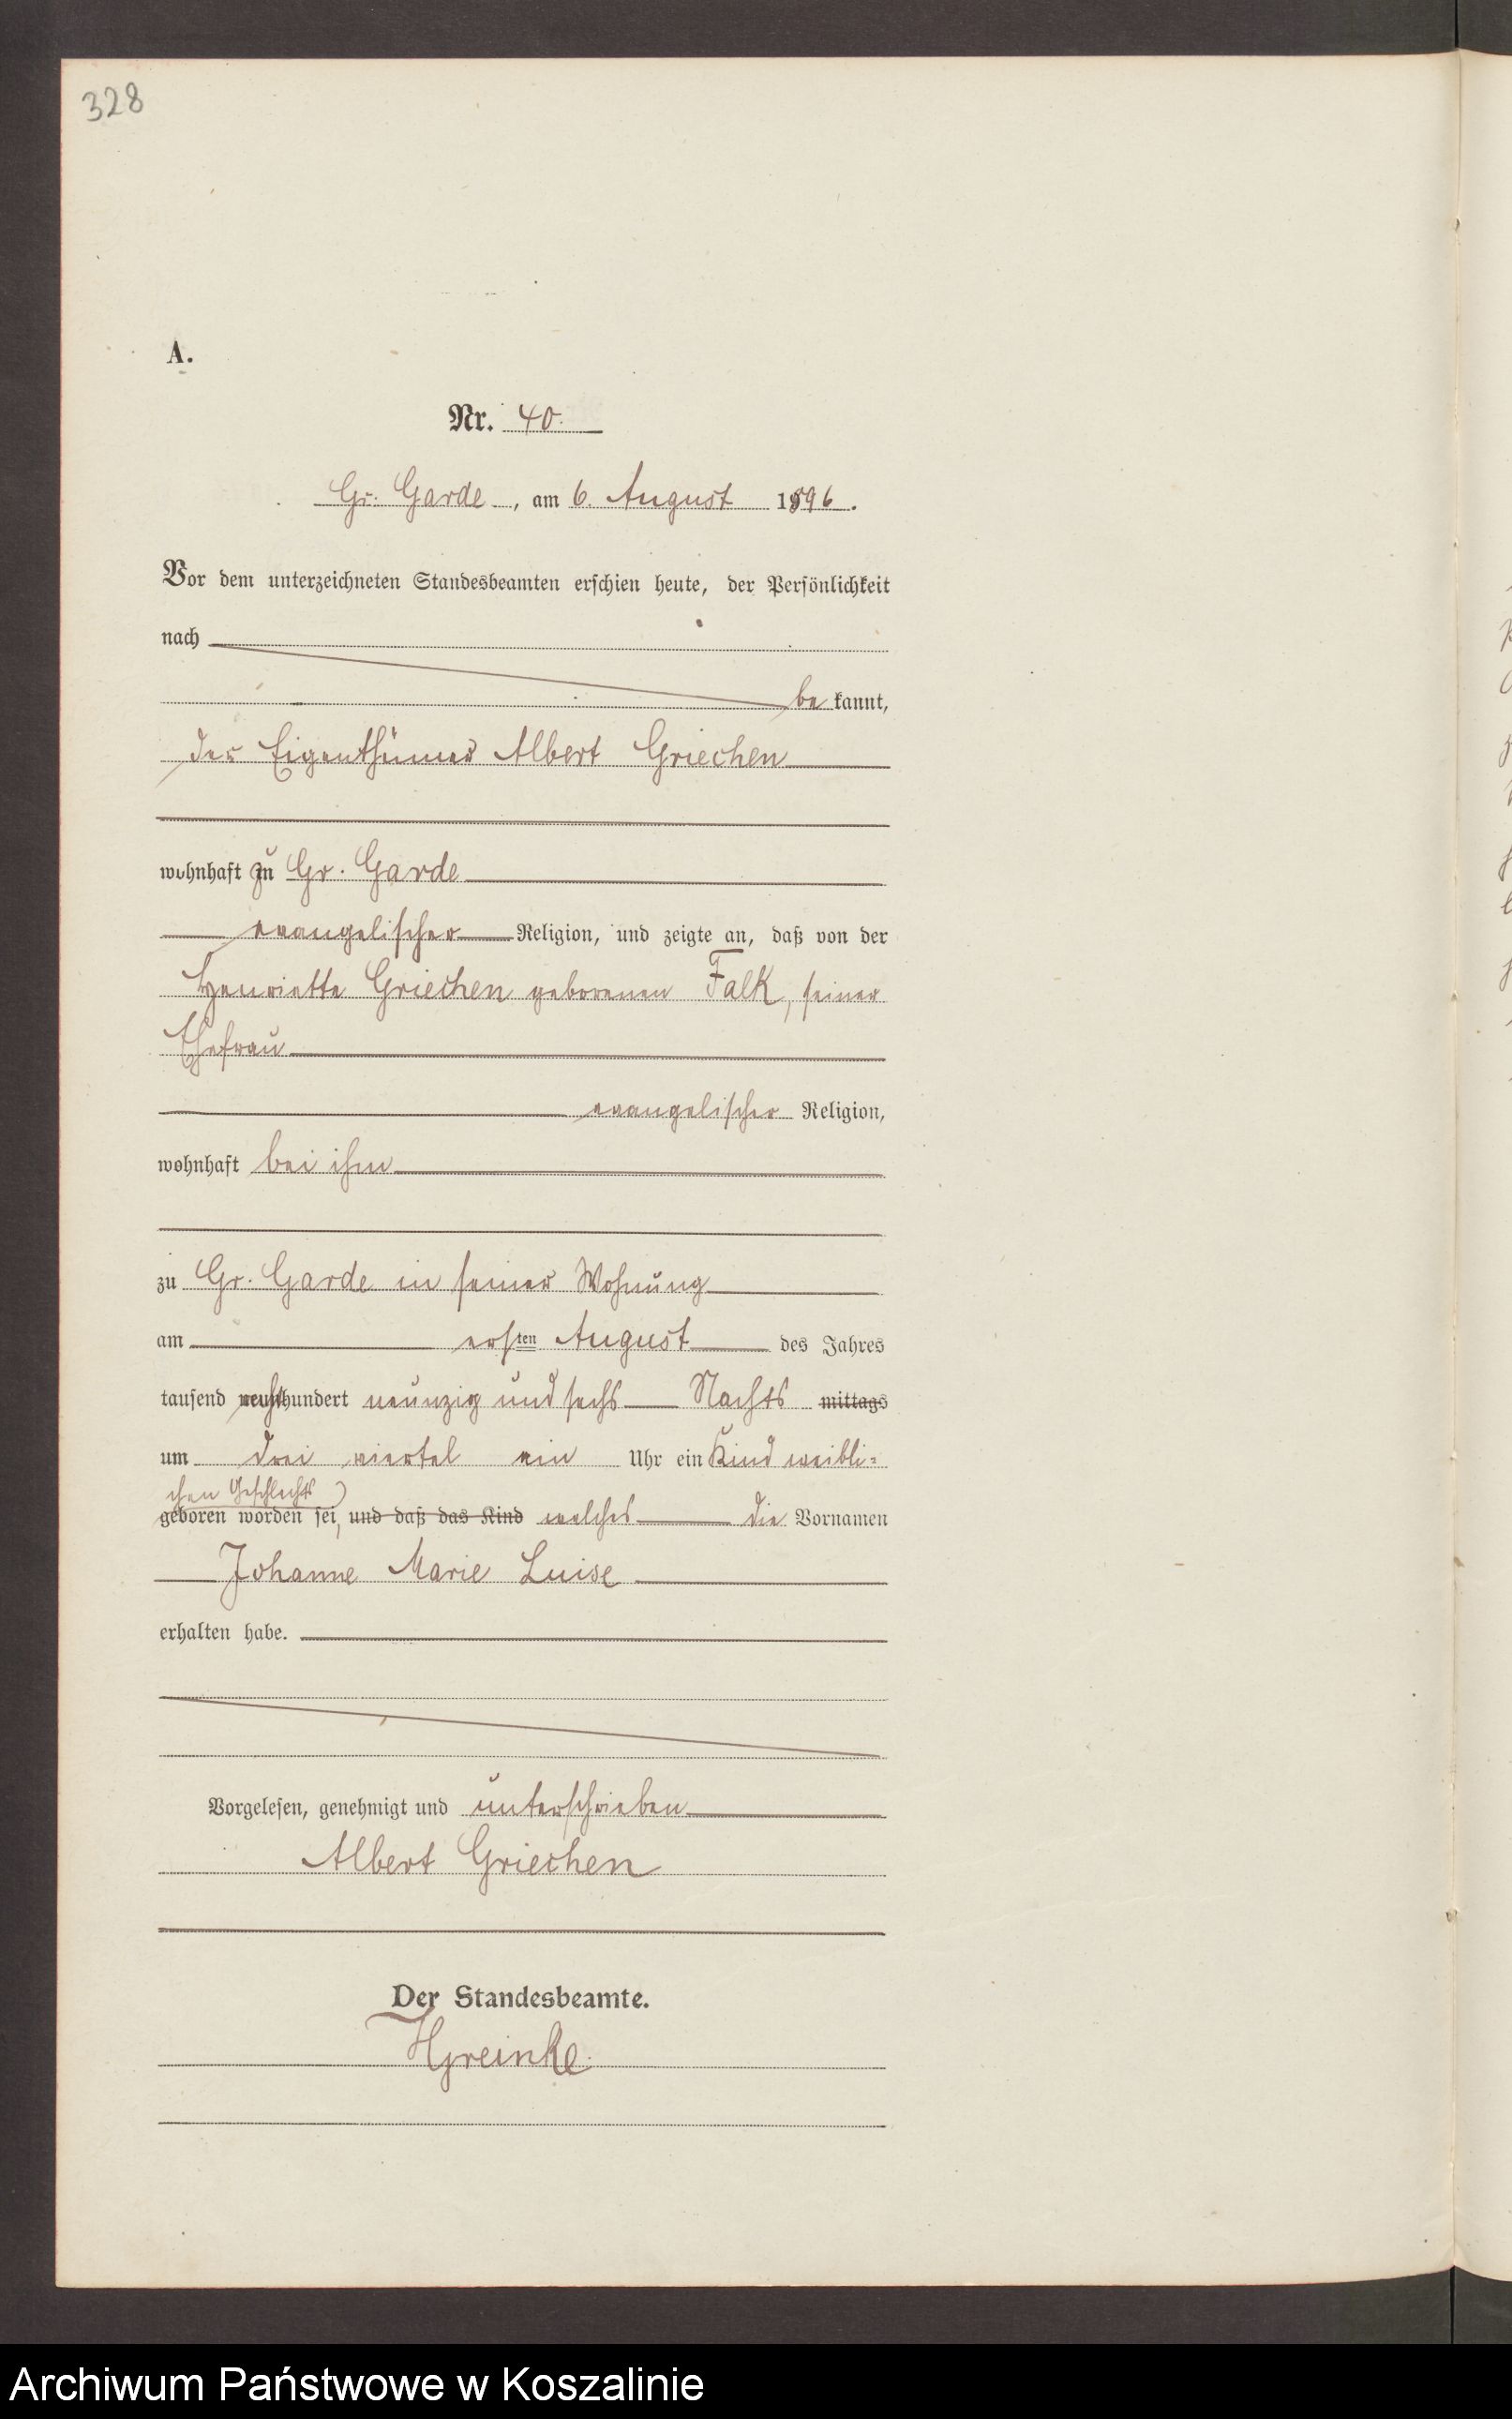 328
A.
Nr. 40.
Gr. Garde, am 6. August 1896.
Vor dem unterzeichneten Standesbeamten erschien heute, der Persönlichkeit
nach
be kannt,
der Eigenthümer Albert Griechen
wohnhaft zu Gr. Garde
evangelischer Religion, und zeigte an, daß von der
Henriette Griechen geborenen Falk, seiner
Ehefrau
evangelischer Religion,
wohnhaft bei ihm
zu Gr. Garde in seiner Wohnung
am ersten August des Jahres
tausend achthundert neunzig und sechs Nachts mittags
um drei viertel ein Uhr ein Kind weibli=
chen Geschlechts
geboren worden sei, und daß das Kind welches die Vornamen
Johanne Marie Luise
erhalten habe.
Vorgelesen, genehmigt und unterschrieben
Albert Griechen
Der Standesbeamte.
Archiwum Państwowe w Koszalinie